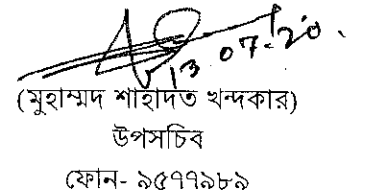 13.07.20.
(মুহাম্মদ শাহাদত খন্দকার)
উপসচিব
ফোন- ৯৫৭৭৯৮৯